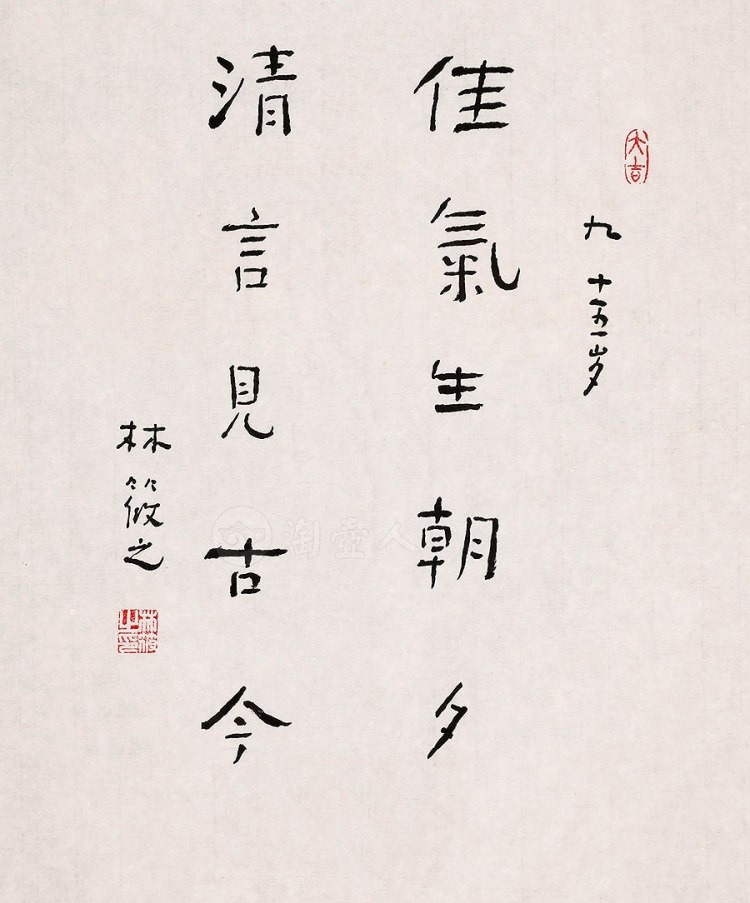 大吉
九十五岁
佳氣生朝夕
清言見古今
林筱之
林筱之印
淘壺人